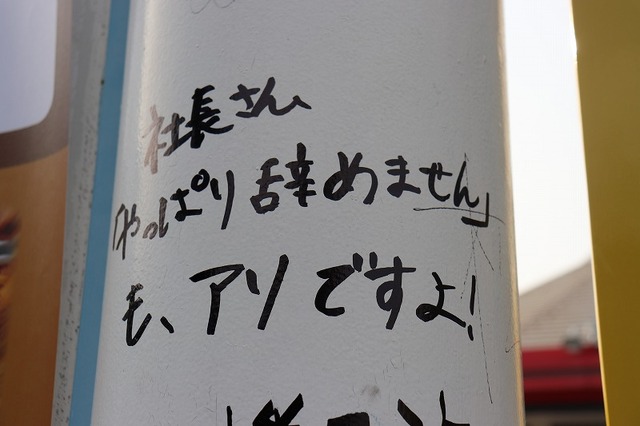 社長さん、
「やっぱり辞めません」
も、アリですよ!